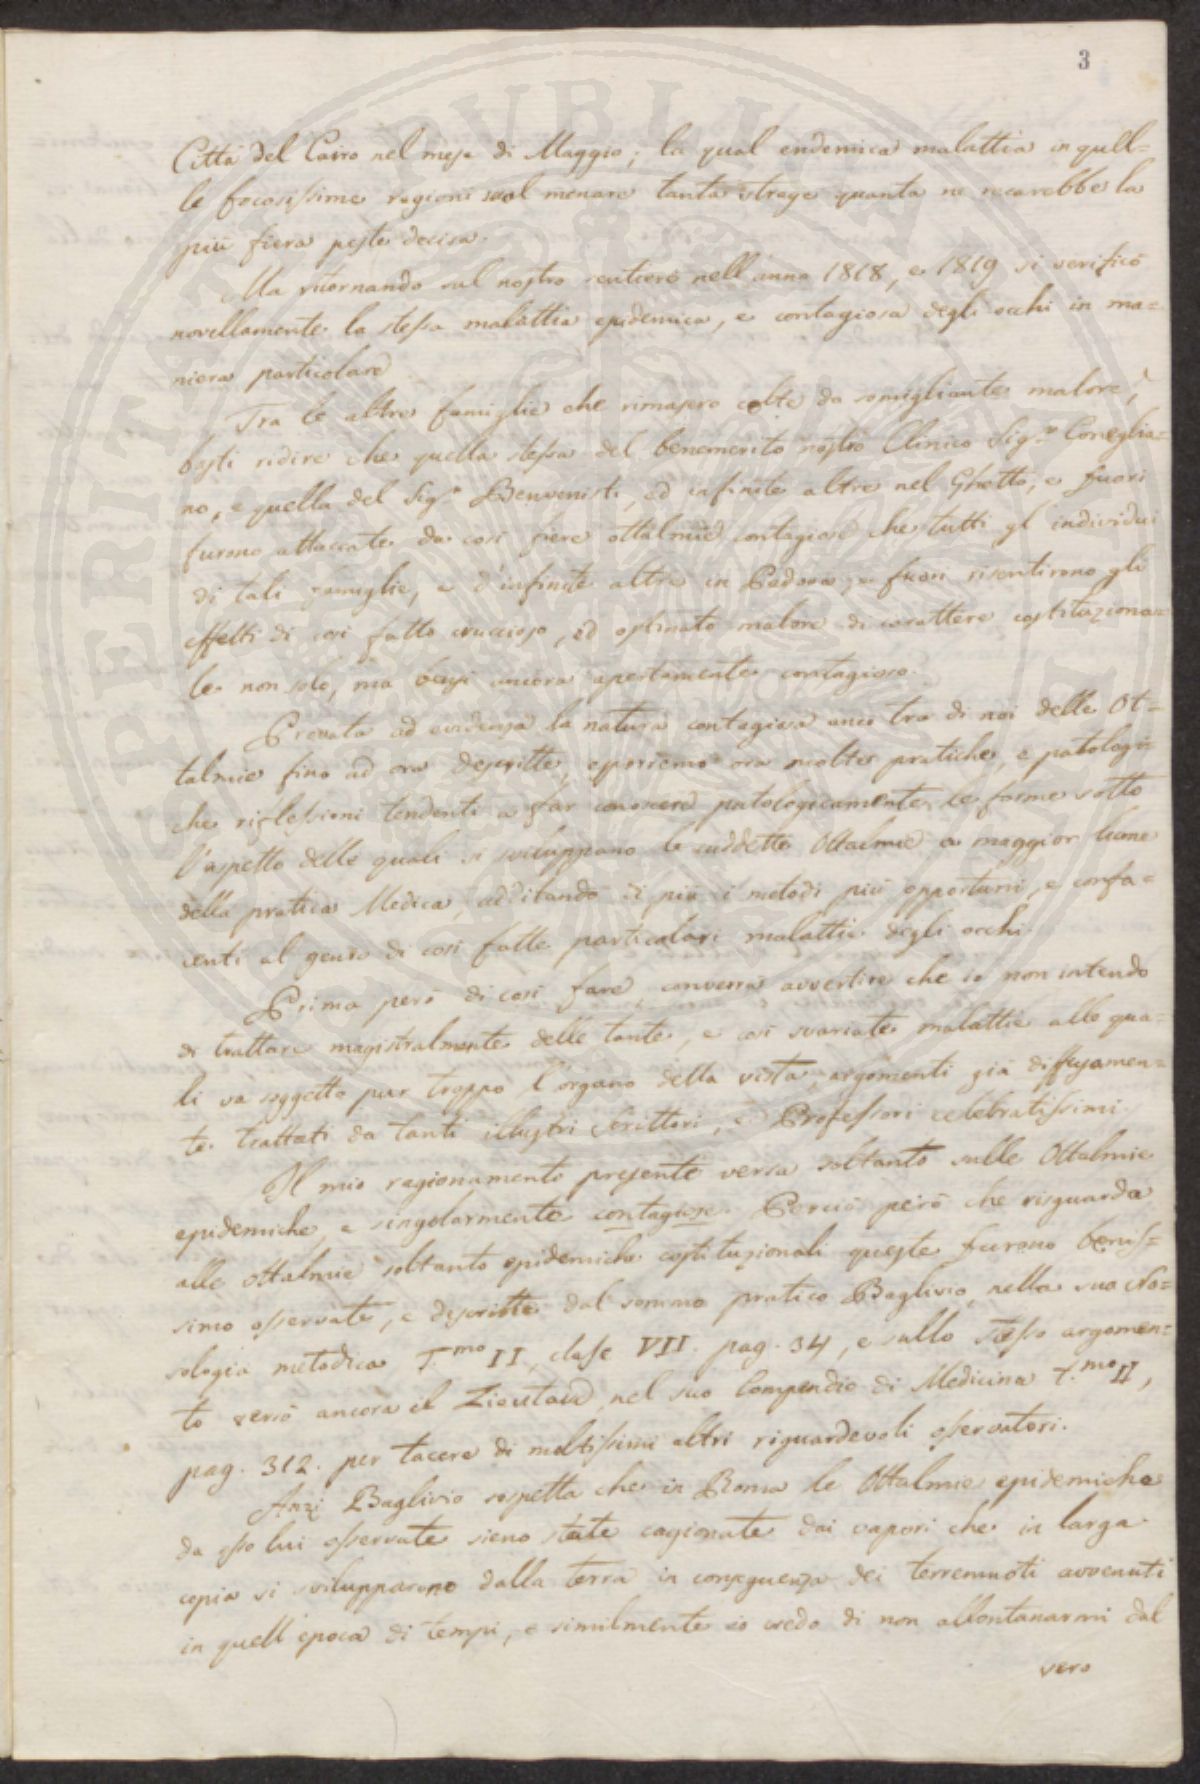 3
Città del Cairo nel mese di Maggio; la qual endemica malattia in quel=
le focosissime regioni suol menare tanta strage quanta ne recarebbe la
più fiera peste decisa.
Ma ritornando sul nostro sentiero nell'anno 1818, e 1819 si verificò
novellamente la stessa malattia epidemica, e contagiosa degli occhi in ma=
niera particolare.
Tra le altre famiglie che rimasero colte da somigliante malore,
basti ridire che quella stessa del benemerito nostro Clinico Sig.r Coneglia=
no, e quella del Sig.r Benvenisti, ed infinite altre nel Ghetto, e fuori
furono attaccate da così fiere ottalmie contagiose che tutti gl'individui
di tali famiglie, e d'infinite altre in Padova, e fuori risentirono gli
effetti di così fatto cruccioso, ed ostinato malore di carattere costituziona=
le non solo, ma benzì ancora apertamente contagioso.
Provata ad evidenza la natura contagiosa anco tra di noi delle Ot=
talmie fino ad ora descritte, esporremo ora molte pratiche, e patologi=
che riflessioni tendenti a far conoscere patologicamente le forme sotto
l'aspetto delle quali si sviluppano le suddette Ottalmie a maggior lume
della pratica Medica, additando di più i metodi più opportuni, e confa=
centi al genio di così fatte particolari malattie degli occhi.
Prima però di così fare, converrà avvertire che io non intendo
di trattare magistralmente delle tante, e così svariate malattie alle qua=
li va soggetto pur troppo l'organo della vista, argomenti già diffusamen=
te trattati da tanti illustri Scrittori, e Professori celebratissimi.
Il mio ragionamento presente versa soltanto sulle Ottalmie
epidemiche, e singolarmente contagiose. Perciò però che risguarda
alle ottalmie soltanto epidemiche costituzionali queste furono benis=
simo osservate, e descritte dal sommo pratico Baglivio, nella sua No=
sologia metodica T.mo II, classe VII. pag. 34, e sullo stesso argomen=
to versò ancora il nel suo Compendio di Medicina T.mo II,
pag. 312. per tacere di moltissimi altri riguardevoli osservatori.
Anzi Baglivio sospetta che in Roma le Ottalmie epidemiche
da esso lui osservate sieno state cagionate dai vapori che in larga
copia si svilupparono dalla terra in conseguenza dei terremuoti avvenuti
in quell'epoca di tempi, e similmente io credo di non allontanarmi dal
vero